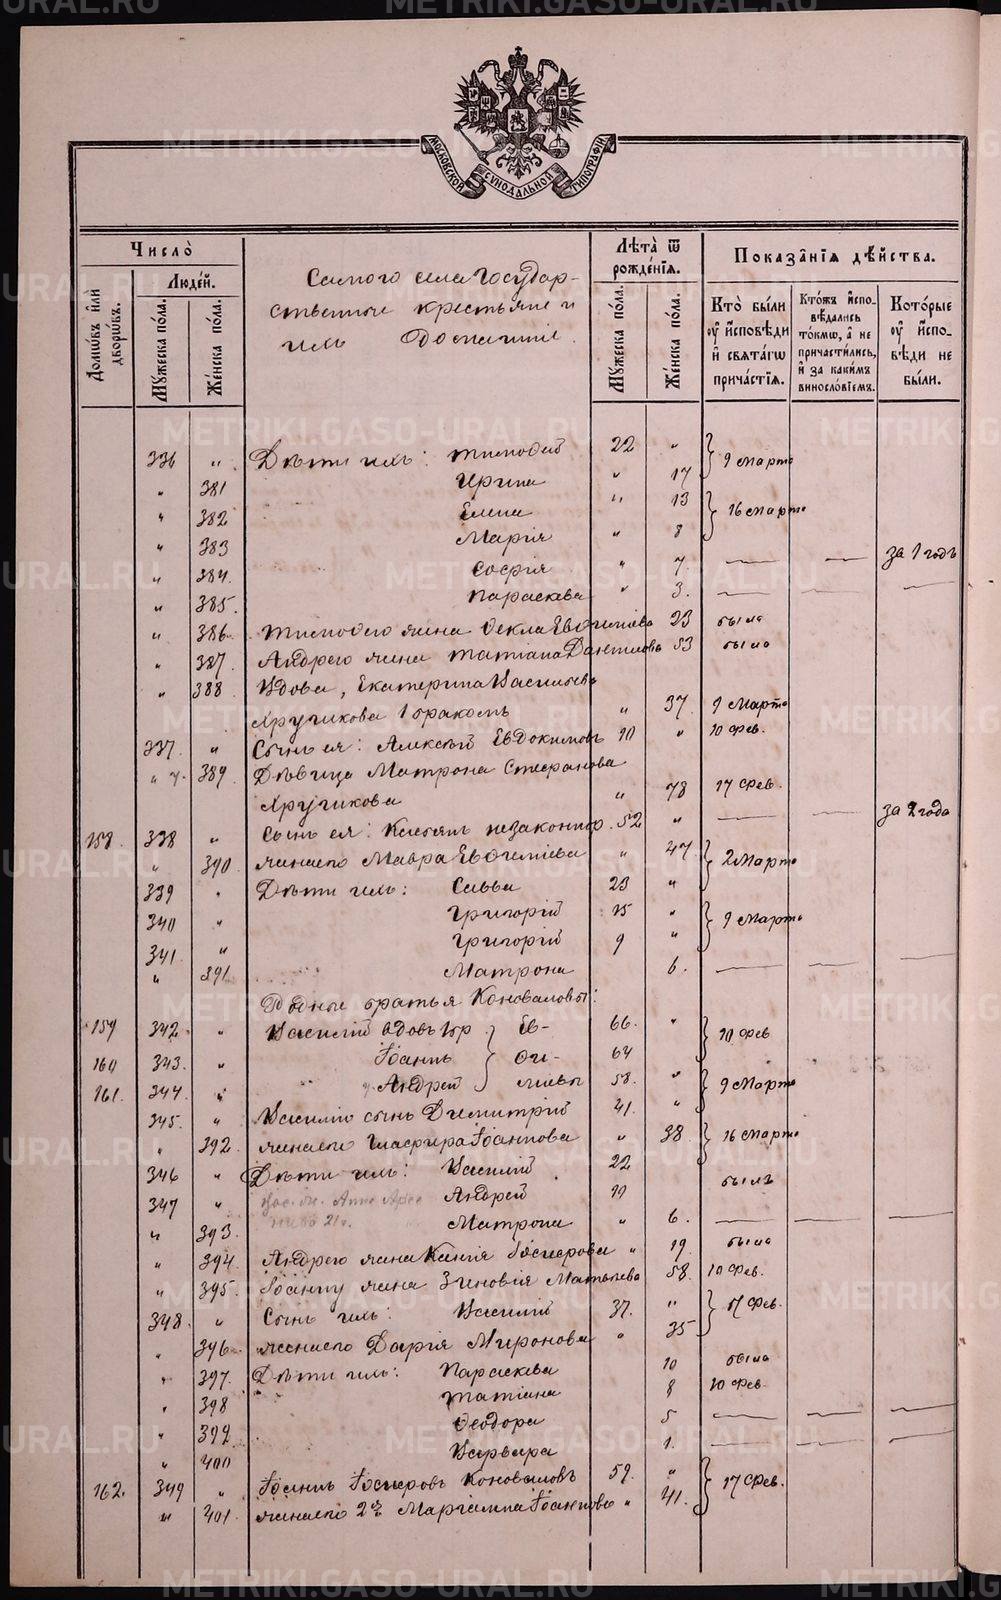 МОСКОВСКОЙ СѴНОДАЛЬНОЙ ТИПОГРАФІИ
Число̀
Людей.
Домѡвъ или дворѡвъ.
Мꙋжеска по́ла.
Же́нска по́ла.
Самого села Государ-
ственные крестьяне и
ихъ домашніе.
Лѣта̀ ѿ рожде́нїѧ.
Мꙋжеска по́ла.
Же́нска по́ла.
Показа̂нїѧ дѣйства.
Кто̀ бы́ли ᲂу҆ и҆сповѣди и҆ свѧта́гѡ прича́стїѧ.
Кто́жъ и҆спо-вѣдались то́кмѡ, а҆ не причасти́лись, и҆ за каки́мъ винослов́їемъ.
Кото́рые ᲂу҆ и҆спо-вѣди не бы́ли.
336 " Дѣти ихъ: Тимофей 22 " 9 Марта
" 381 Ирина " 17
" 382 Елена " 13 16 Марта
" 383 Марія " 8
" 384. Софія " 7. — — за 1 годъ
" 385. Параскева " 3. — — —
" 386. Тимофею жена Ѳекла Евѳиміева 23 была
" 387. Андрею жена Татіана Даніилова 53 была
" 388 Вдова, Екатерина Васильева
Хручкова 1 бракомъ " 37. 9 Марта
337. " Сынъ ея: Алексѣй Евдокимовъ 10 " 10 фев.
" 389. Дѣвица Матрона Стефанова
Хручикова " 78 17 Фев.
158. 338 " Сынъ ея: незаконнор. 52 " — — за 2 года
" 390. жена его Мавра Евѳиміева " 47 2 Марта
339 " Дѣти ихъ: Савва 23 "
340 " Григорій 15 " 9 Марта
341. " Григорій 9 "
" 391. Матрона 6. — — —
Родные братья Коноваловы:
159 342 " Василій вдовъ 66. " 10 фев
160 343. " Іоаннъ 64
161. 344. " Андрей 58. " 9 Марта
345. " Василію сынъ Димитрій 41. "
" 392. жена его Гласфира Іоаннова " 38. 16 Марта
346 " Дѣти ихъ: Василій 22
347 " Андрей 19 былъ
" 393. Матрона " 6. — — —
" 394. Андрею жена Ксенія " 19. была
" 395. Іоанну жена Зиновія Матвѣева 58. 10 Фев.
348. " Сынъ ихъ: Василій 37. " 17 Фев.
" 396. жена его Дарія Миронова " 35
" 397. Дѣти ихъ: Параскева 10 была
" 398 Татіана 8 10 Фев.
" 399. Ѳеодора 5 — — —
" 400 Варвара 1. — — —
162. 349 " Іоаннъ Коноваловъ 59. " 17 Фев.
" 401. жена его 2ая Іоаннова " 41.
METRIKI.GASO-URAL.RU